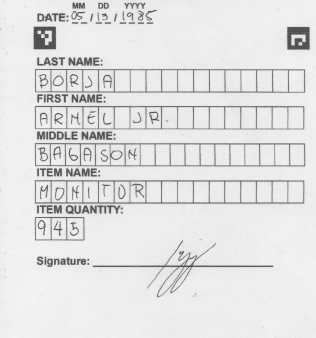 MM DD YYYY
DATE: 05/13/1985
LAST NAME:
BORJA
FIRST NAME:
ARNEL JR.
MIDDLE NAME:
BAGASON
ITEM NAME:
MONITOR
ITEM QUANTITY:
945
Signature: